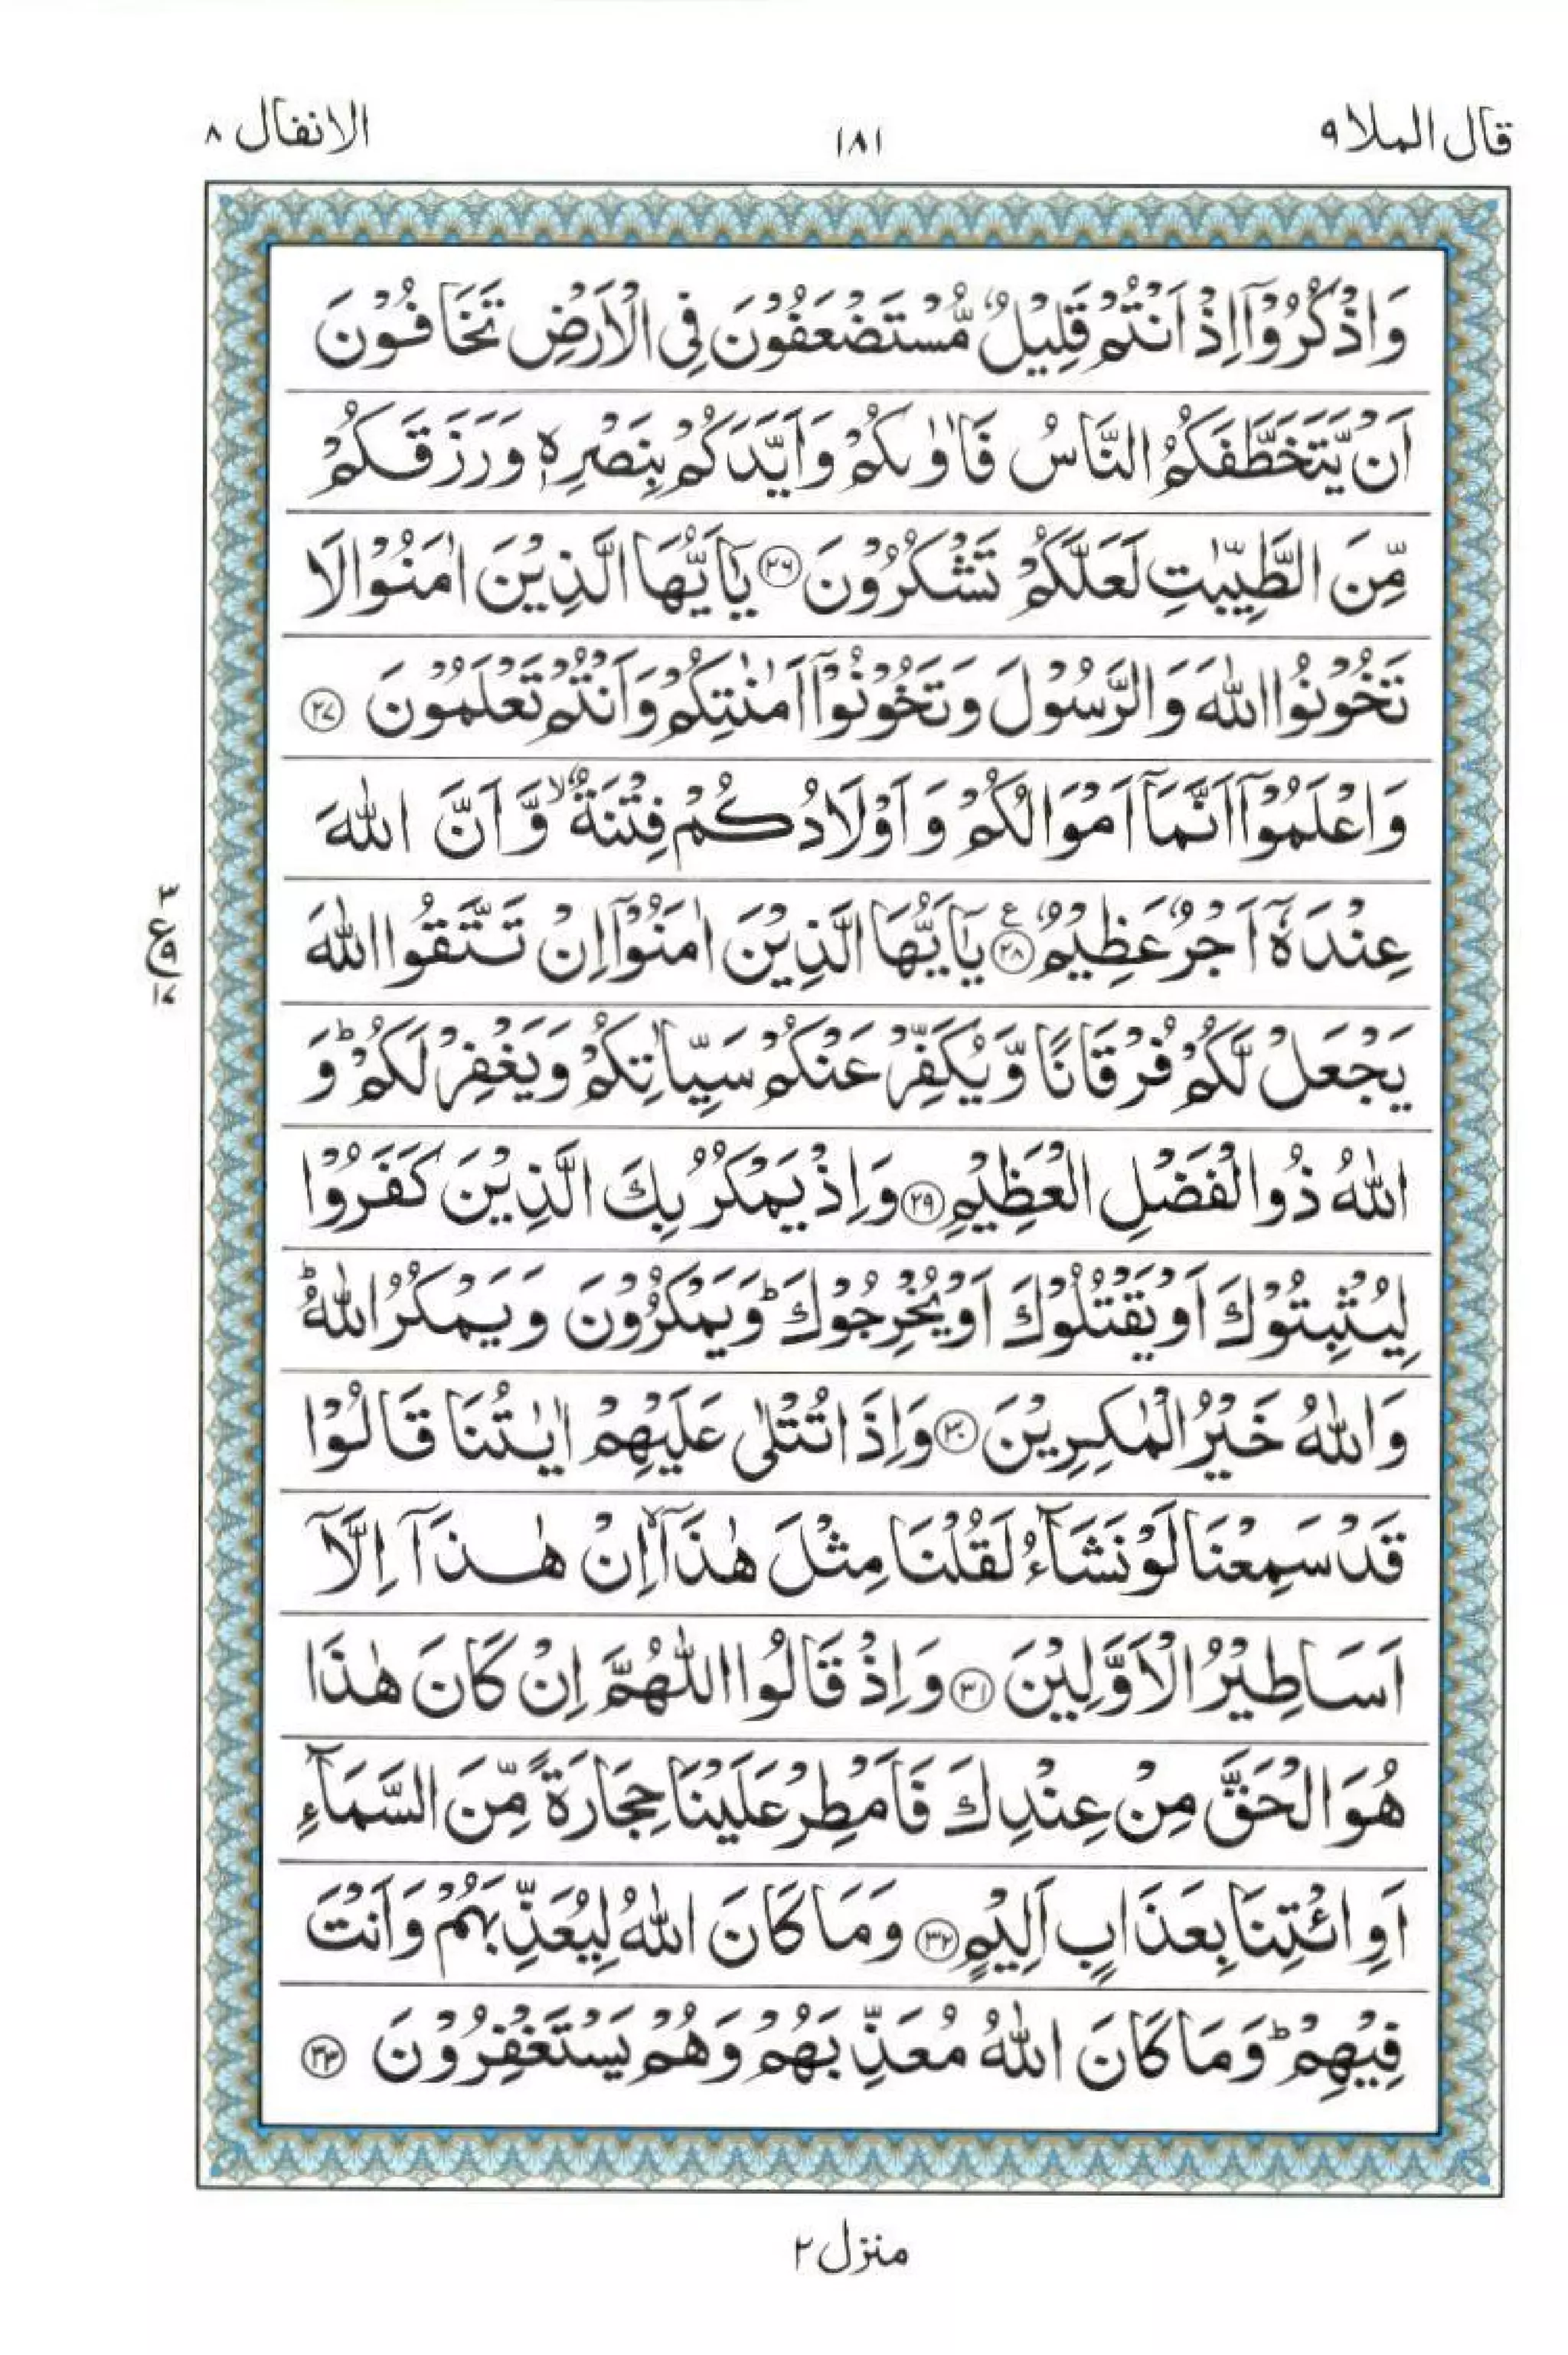 قال الملا ٩
١٨١
الانفال ٨
وَاذْكُرُوْٓا اِذْ اَنْتُمْ قَلِيْلٌ مُّسْتَضْعَفُوْنَ فِى الْاَرْضِ تَخَافُوْنَ
اَنْ يَّتَخَطَّفَكُمُ النَّاسُ فَاٰوٰىكُمْ وَاَيَّدَكُمْ بِنَصْرِهٖ وَرَزَقَكُمْ
مِّنَ الطَّيِّبٰتِ لَعَلَّكُمْ تَشْكُرُوْنَ ۝٢٦ يٰٓاَيُّهَا الَّذِيْنَ اٰمَنُوْا لَا
تَخُوْنُوا اللّٰهَ وَالرَّسُوْلَ وَتَخُوْنُوْٓا اَمٰنٰتِكُمْ وَاَنْتُمْ تَعْلَمُوْنَ ۝٢٧
وَاعْلَمُوْٓا اَنَّمَآ اَمْوَالُكُمْ وَاَوْلَادُكُمْ فِتْنَةٌ ۙ وَّاَنَّ اللّٰهَ
عِنْدَهٗٓ اَجْرٌ عَظِيْمٌ ۝٢٨ ع يٰٓاَيُّهَا الَّذِيْنَ اٰمَنُوْٓا اِنْ تَتَّقُوا اللّٰهَ
٣
ع
٩
١٧
يَجْعَلْ لَّكُمْ فُرْقَانًا وَّيُكَفِّرْ عَنْكُمْ سَيِّاٰتِكُمْ وَيَغْفِرْ لَكُمْ ؕ وَ
اللّٰهُ ذُو الْفَضْلِ الْعَظِيْمِ ۝٢٩ وَاِذْ يَمْكُرُ بِكَ الَّذِيْنَ كَفَرُوْا
لِيُثْبِتُوْكَ اَوْ يَقْتُلُوْكَ اَوْ يُخْرِجُوْكَ ؕ وَيَمْكُرُوْنَ وَيَمْكُرُ اللّٰهُ ؕ
وَاللّٰهُ خَيْرُ الْمٰكِرِيْنَ ۝٣٠ وَاِذَا تُتْلٰى عَلَيْهِمْ اٰيٰتُنَا قَالُوْا
قَدْ سَمِعْنَا لَوْ نَشَآءُ لَقُلْنَا مِثْلَ هٰذَآ ۙ اِنْ هٰذَآ اِلَّآ
اَسَاطِيْرُ الْاَوَّلِيْنَ ۝٣١ وَاِذْ قَالُوا اللّٰهُمَّ اِنْ كَانَ هٰذَا
هُوَ الْحَقَّ مِنْ عِنْدِكَ فَاَمْطِرْ عَلَيْنَا حِجَارَةً مِّنَ السَّمَآءِ
اَوِ ائْتِنَا بِعَذَابٍ اَلِيْمٍ ۝٣٢ وَمَا كَانَ اللّٰهُ لِيُعَذِّبَهُمْ وَاَنْتَ
فِيْهِمْ ؕ وَمَا كَانَ اللّٰهُ مُعَذِّبَهُمْ وَهُمْ يَسْتَغْفِرُوْنَ ۝٣٣
منزل ٢